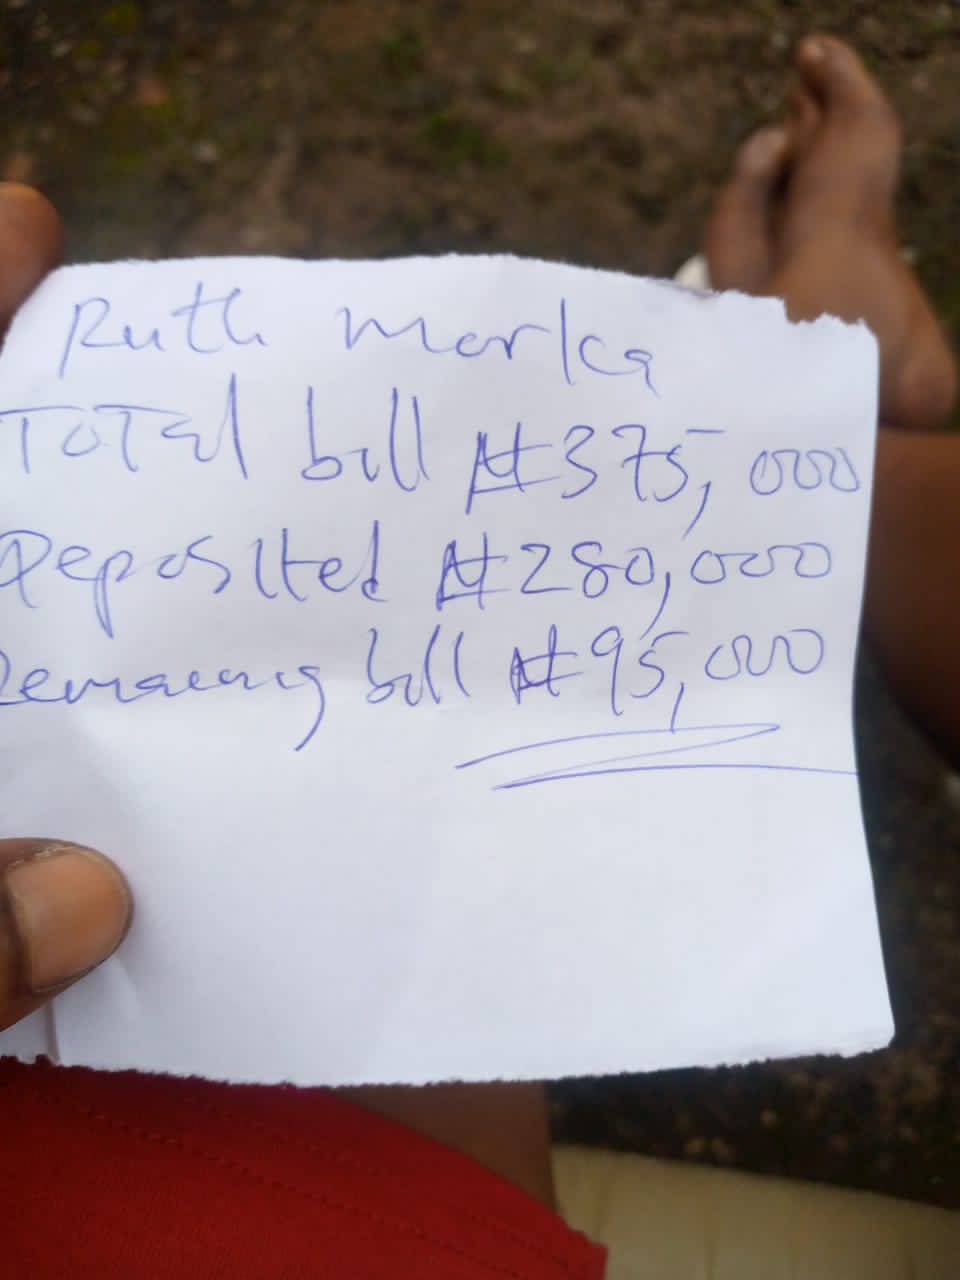 Ruth Marka
Total bill ₦375,000
Deposited ₦280,000
Remaining bill ₦95,000